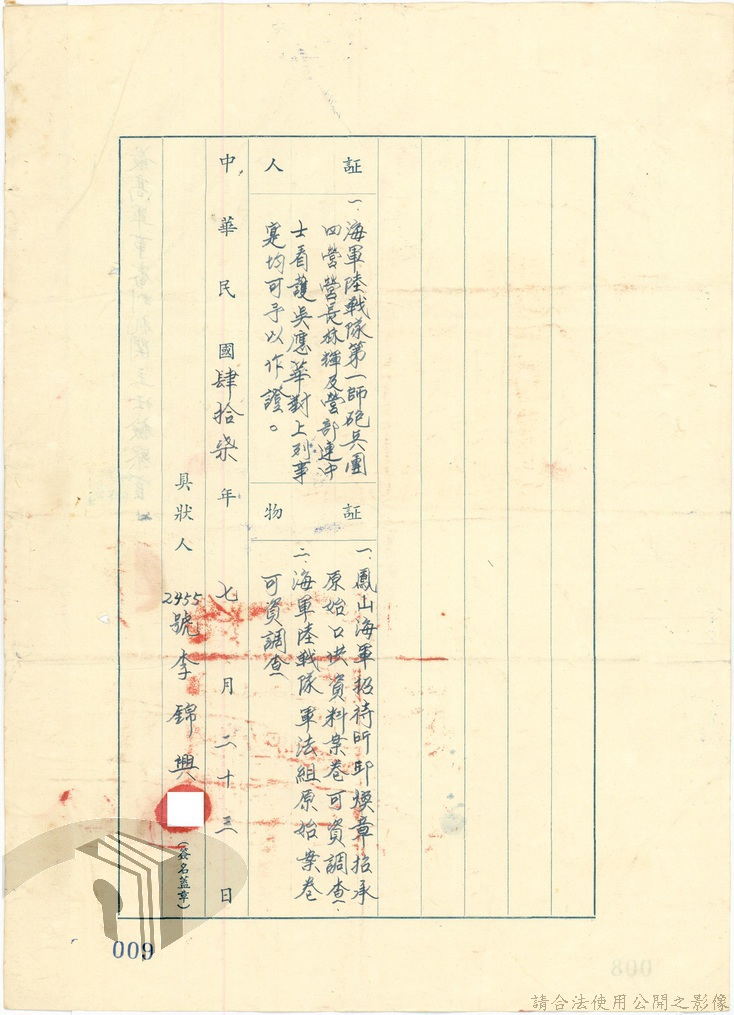 証人
一、海軍陸戰隊第一師砲兵團
四營營長林輝及營部連中
士看護吳應華對上列事
寔均可予以作證。
証物
一、鳳山海軍招待所邱煥章招承
原始口供資料案卷可資調查、
二、海軍陸戰隊軍法組原始案卷
可資調查
中華民國肆拾柒年七月二十三日
具狀人 2455號李錦興 (簽名蓋章)
009
008
請合法使用公開之影像